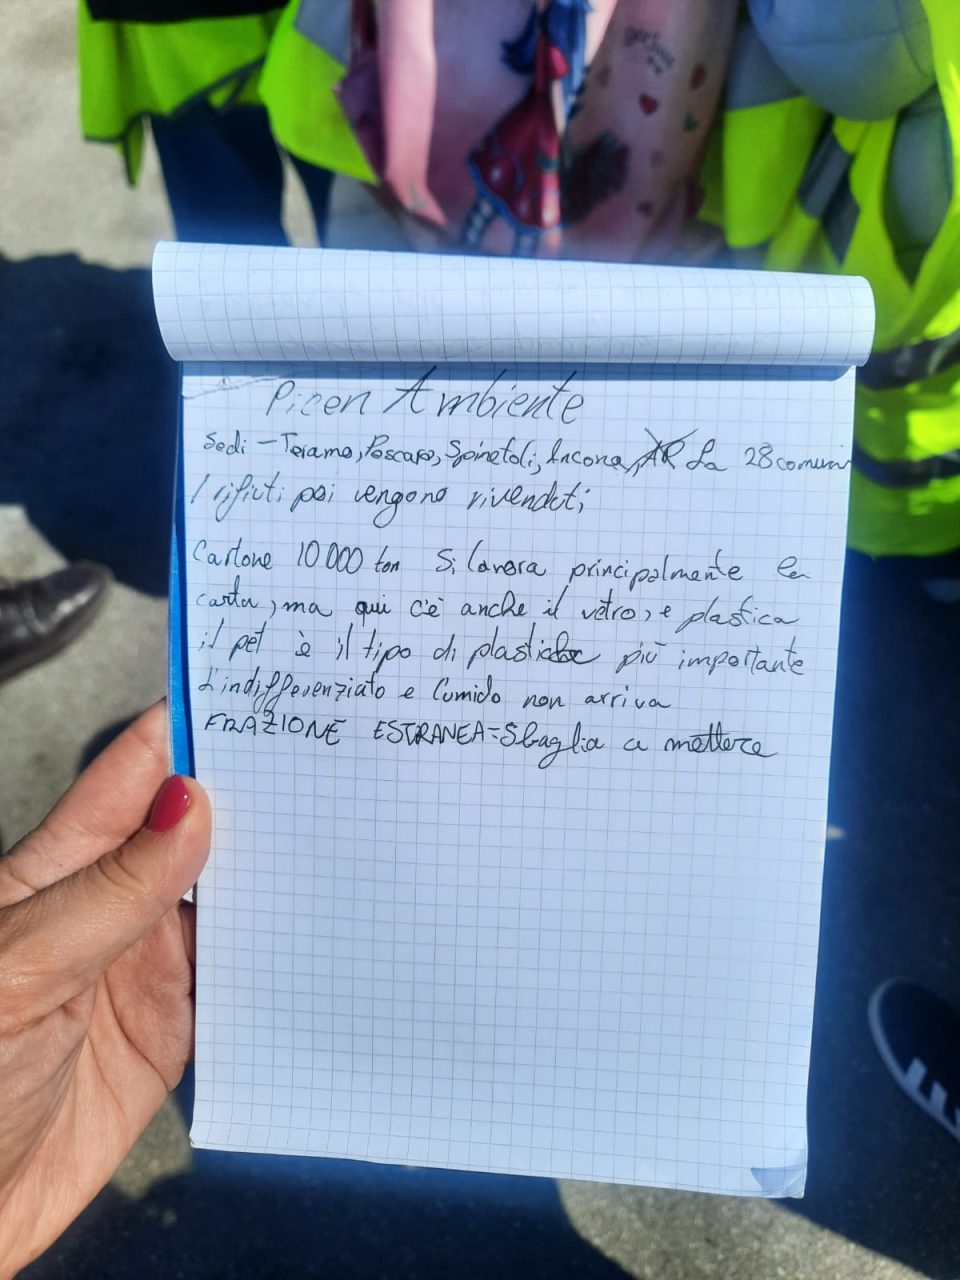 Picen Ambiente
Sedi - Teramo, Pescara, Spinetoli, Ancona, AR Su 28 comuni
I rifiuti poi vengono rivenduti;
Cartone 10000 ton Si lavora principalmente la
carta, ma qui c'è anche il vetro, e plastica
il pet è il tipo di plastica più importante
L'indifferenziato e l'umido non arriva
FRAZIONE ESTRANEA = Sbaglia a mettere